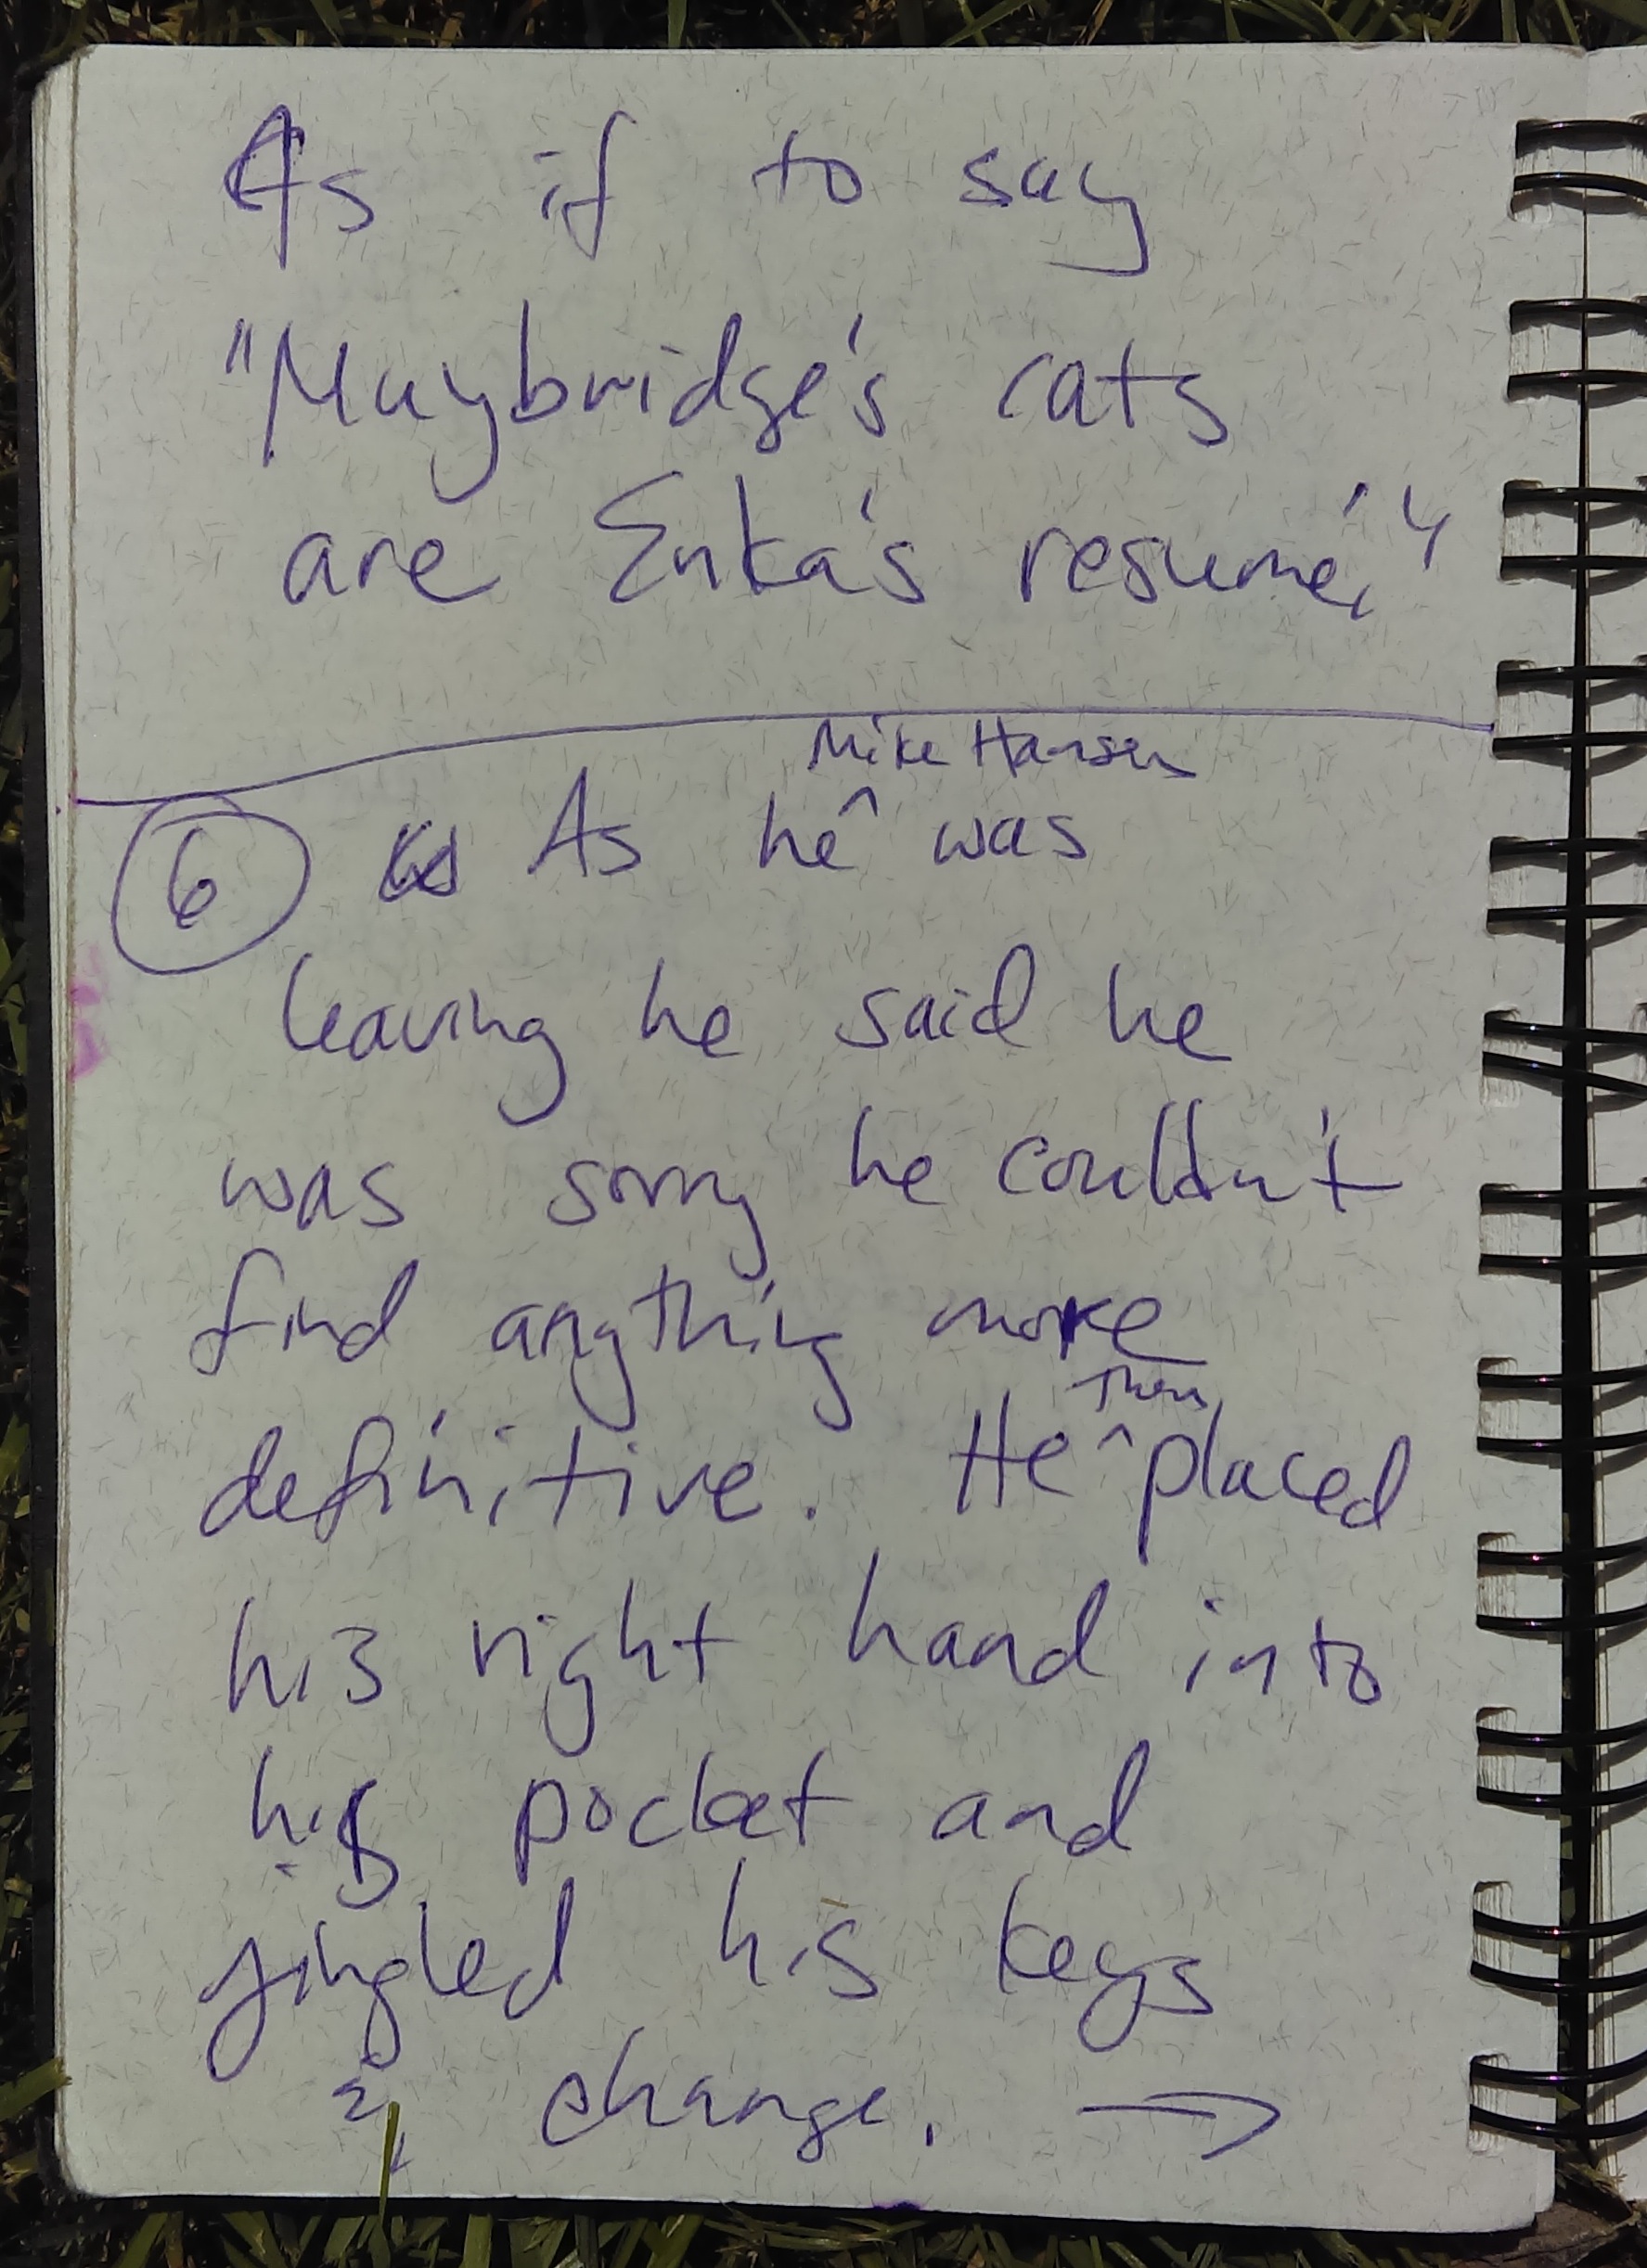 As if to say
"Muybridge's cats
are Enka's resumé."
Mike Hansen
6 As he ^ was
leaving he said he
was sorry he couldn't
find anything more
Then
definitive. He ^ placed
his right hand into
his pocket and
jingled his keys
& change. →